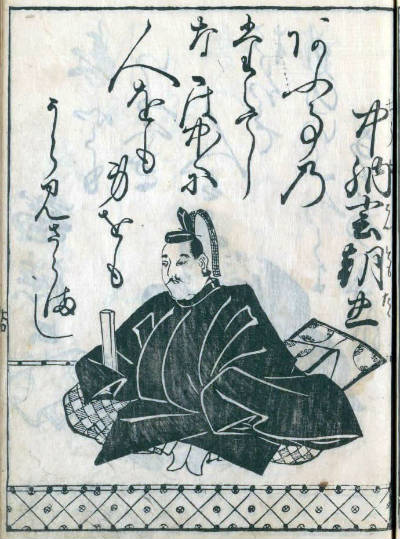 中納言朝忠
あふ事乃
堂えてし
なくは中〳〵尓
人をも
身をも
うら見さらまし